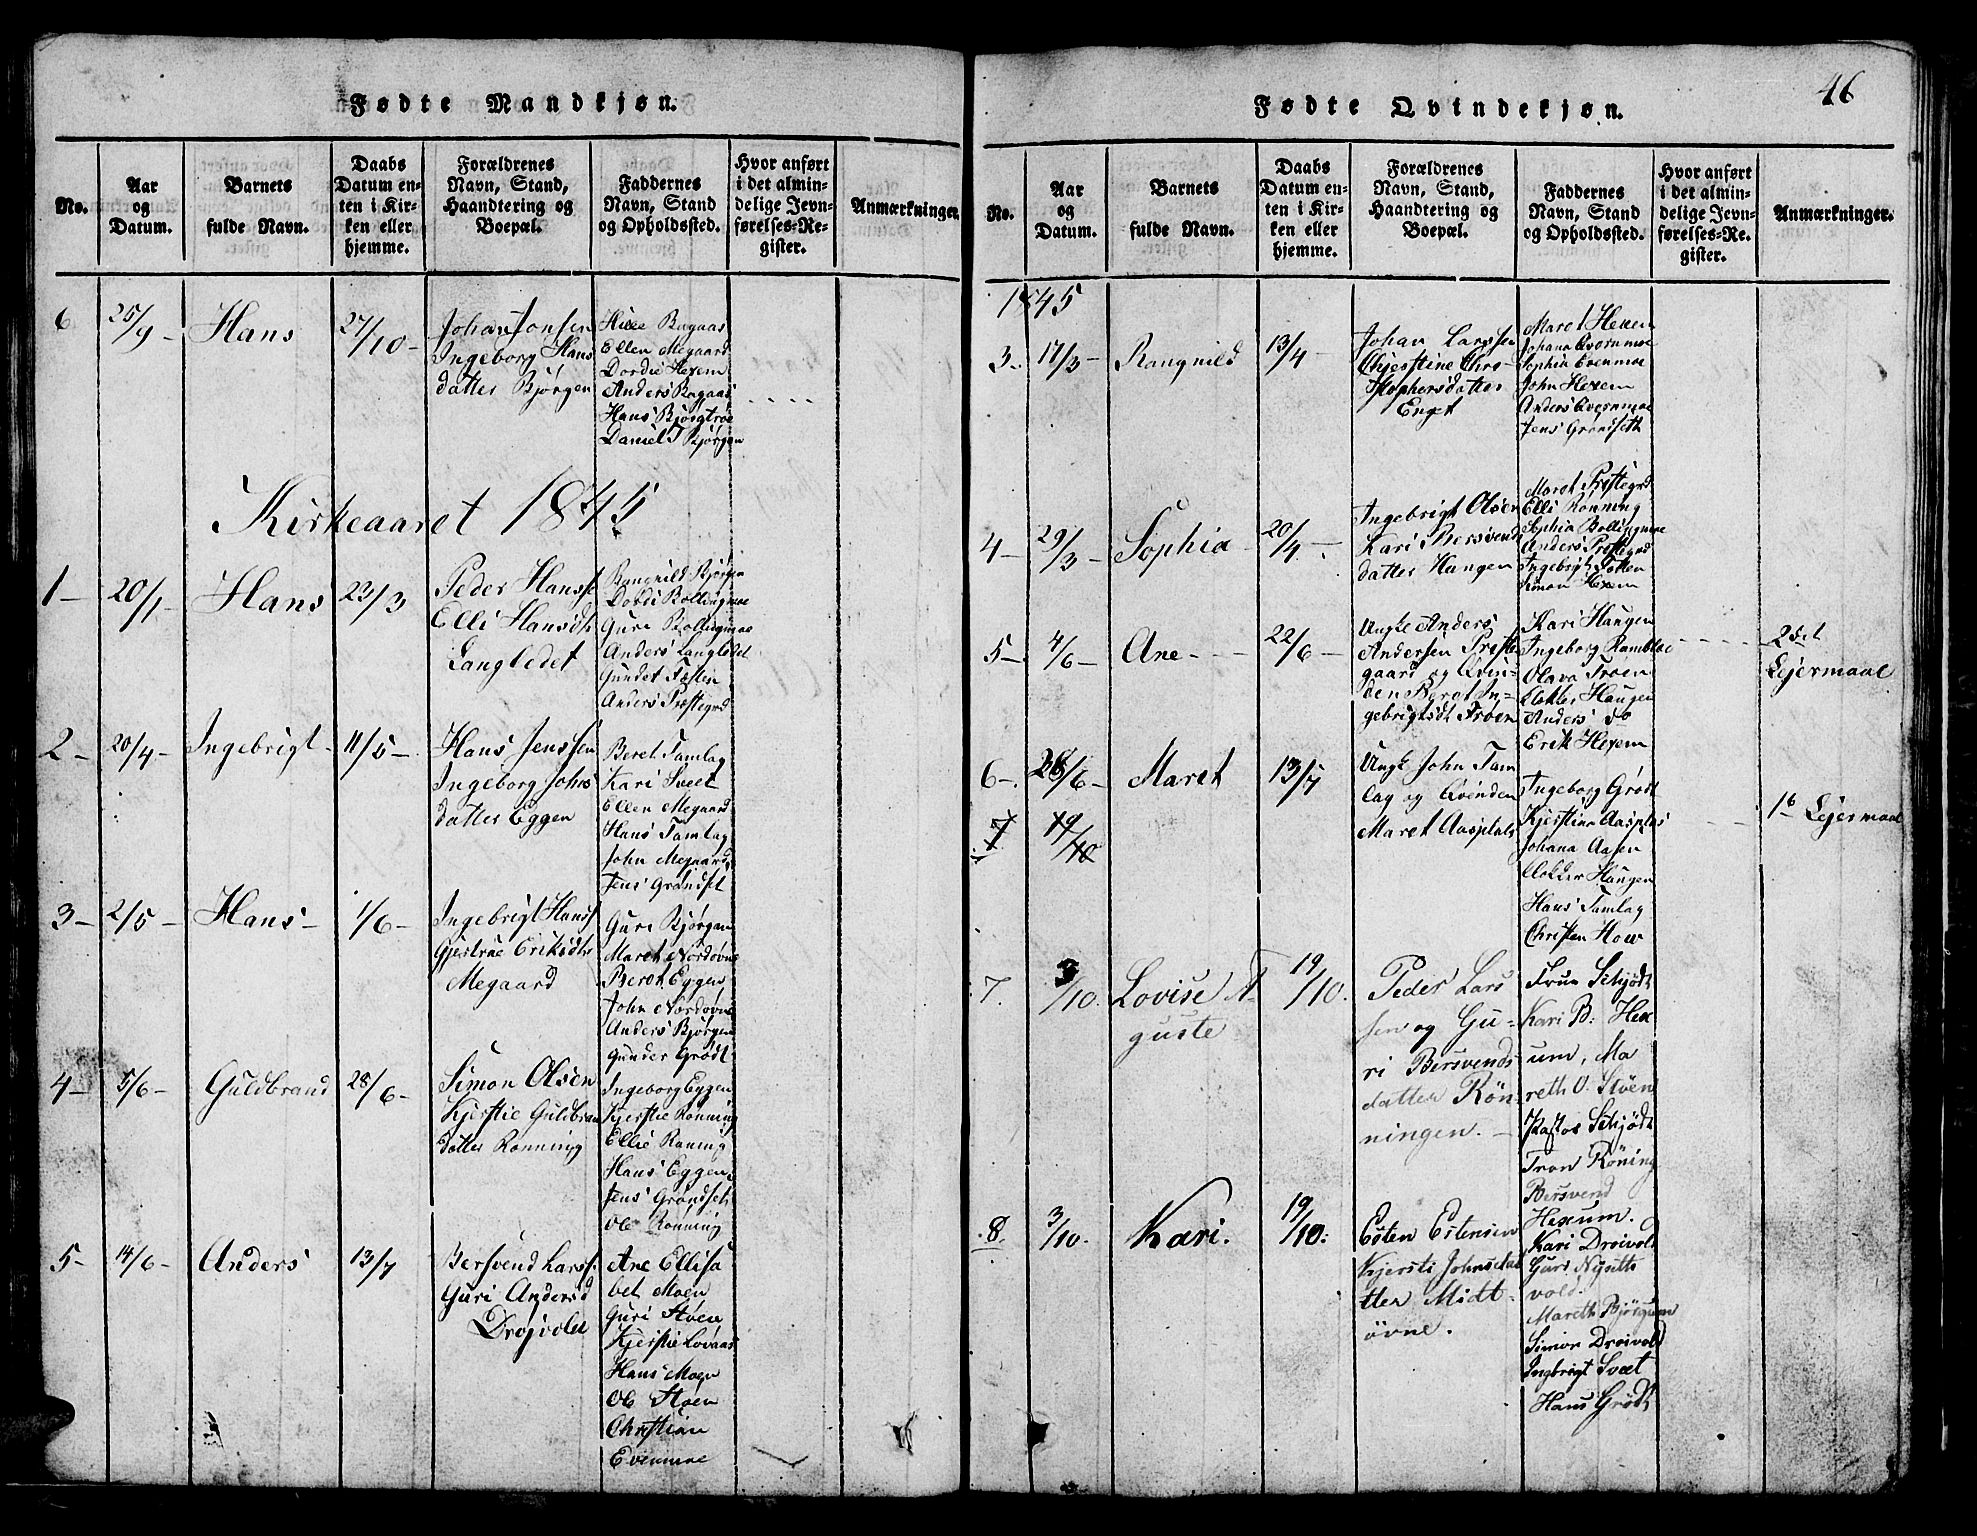 Fødte Mandkjøn.
No.
Aar og Datum.
Barnets fulde Navn.
Daabs Datum enten i Kirken eller hjemme.
Forældrenes Navn, Stand, Haandtering og Boepæl.
Faddernes Navn, Stand og Opholdssted.
Hvor anført i det almindelige Jevnførelses-Register.
Anmærkninger.
6 25/9 - Hans 27/10 -
Johan Jonsen
Ingeborg Hans
datter Bjørgen
Bagaas
Ellen Megaard
Dordie Hexem
Anders Bagaas
Hans Bjørgtrøe
Daniel T Bjørgen
Kirkeaaret 1845
1 - 20/1 - Hans 23/3
Peder Hansse
Elli Hansdtr
Langledet
Rangnild Bjørgen
Dordi Bollingmoe
Guri Bollingmoe
Anders Langledet
Gundet Fosten
Anders Præstegrd
2 - 20/4 - Ingebrigt - 11/5 -
Hans Jenssen
Ingeborg Johns
datter Eggen
Beret Tamlag
Kari Svet
Ellen Megaard
Hans Tamlag
John Megaard
Jens Grøndset
3 - 2/5 - Hans - 1/6 -
Ingebrigt Hanss
Gjertrue Eriksdtr
Megaard
Guri Bjørgen
Maret Nordøvne
Beret Eggen
John Nordøvne
Anders Bjørgen
Gunder Grødt
4 - 5/6 - Guldbrand 28/6 -
Simon Olsen
Kjerstie Guldbran
datter Rønning
Ingeborg Eggen
Kjerstie Rønning
Ellie Rønning
Hans Eggen
Jens Grøndset
Ole Rønning
5 - 14/6 - Anders 13/7
Bersvend Larss.
Guri Andersd
Drøjvold
Ane Ellisa
bet Moen
Guri Støen
Kjerstie Lovaas
Hans Moen
Ole Støen
Christian
Evenmoe
46
Fødte Qvindekjøn.
No.
Aar og Datum.
Barnets fulde Navn.
Daabs Datum enten i Kirken eller hjemme.
Forældrenes Navn, Stand, Haandtering og Boepæl.
Faddernes Navn, Stand og Opholdssted.
Hvor anført i det almindelige Jevnførelses-Register.
Anmærkninger.
1845
3 - 17/3 - Rangnild 13/4 -
Johan Larssen
Chjerstine Chri-
stophersdatter
Enget
Maret Hexem
Johana Qvernmoe
Sophia Evenmoe
John Hexem
Anders Qvernmoe
Jens Grøndseth
4 - 29/3 - Sophia 20/4 -
Ingebrigt Olsen
Kari Bersvend
datter Haugen
Maret Præstegrd
Elli Rønning
Sophia Bollingmoe
Anders Præstegrd
Ingebrigt
Simon Hexem
5 - 4/6 - Ane - - 22/6 -
Ungke Anders
Andersen Præste
gaard og Qvin-
den Beret In-
gebrigtsdt Trøen
Kari Haugen
Ingeborg Ramblae
Olava Trøen
Clokker Haugen
Anders do
Erik Hexem
2det
Lejermaal
6 - 28/6 - Maret 13/7
Ungk John Tam
lag og Qvinden
Maret Aasplads
Ingeborg Grødt
Kjerstina Aasplas
Johana Aasen
Clokker Haugen
Hans Tamlag
Christen How
1te Lejermaal
7 19/10
7. 3/10. Lovise A
guste 19/10.
Peder Lars
sen og Gu-
ri Bersvends
datter Røn-
ningen. -
Frue Schjödt
Kari B: Hex
um, Ma
reth O. Støen
Pastor Schjödt
Tron Röning
Bersvend
Hexum.
8. 3/10. Kari. 19/10.
Esten Estensen
Kjersti Johnsdat
ter Midt-
övne.
Kari Droivold
Guri Nysette
vold.
Mareth Bjørgum
Simon Droivold
Ingbrigt Svæt
Hans Grødt